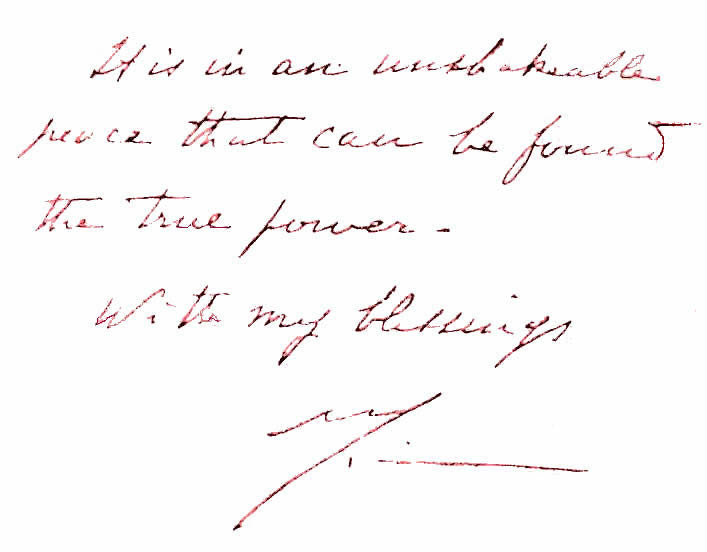 It is in an unshakeable
peace that can be found
the true power -
With my blessings